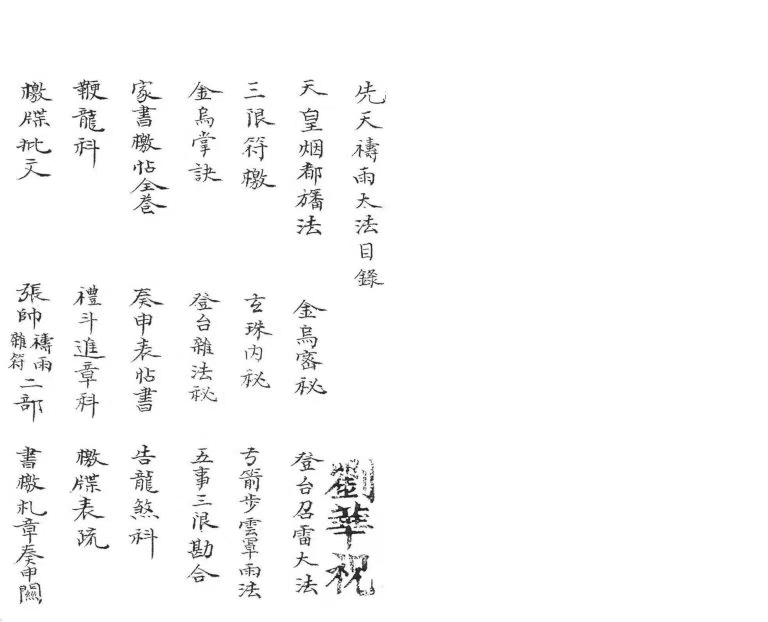 先天禱雨大法目錄
劉華祝
天皇烟都旛法 金烏密秘 登台召雷大法
三限符檄 玄珠内秘 弓箭步雲罩雨法
金烏掌訣 登台雜法秘 五事三限勘合
家書檄帖全卷 奏申表帖書 告龍煞科
鞭龍科 禮斗進章科 檄牒表疏
檄牒批文 張帥禱雨雜符二部 書檄札章奏申關